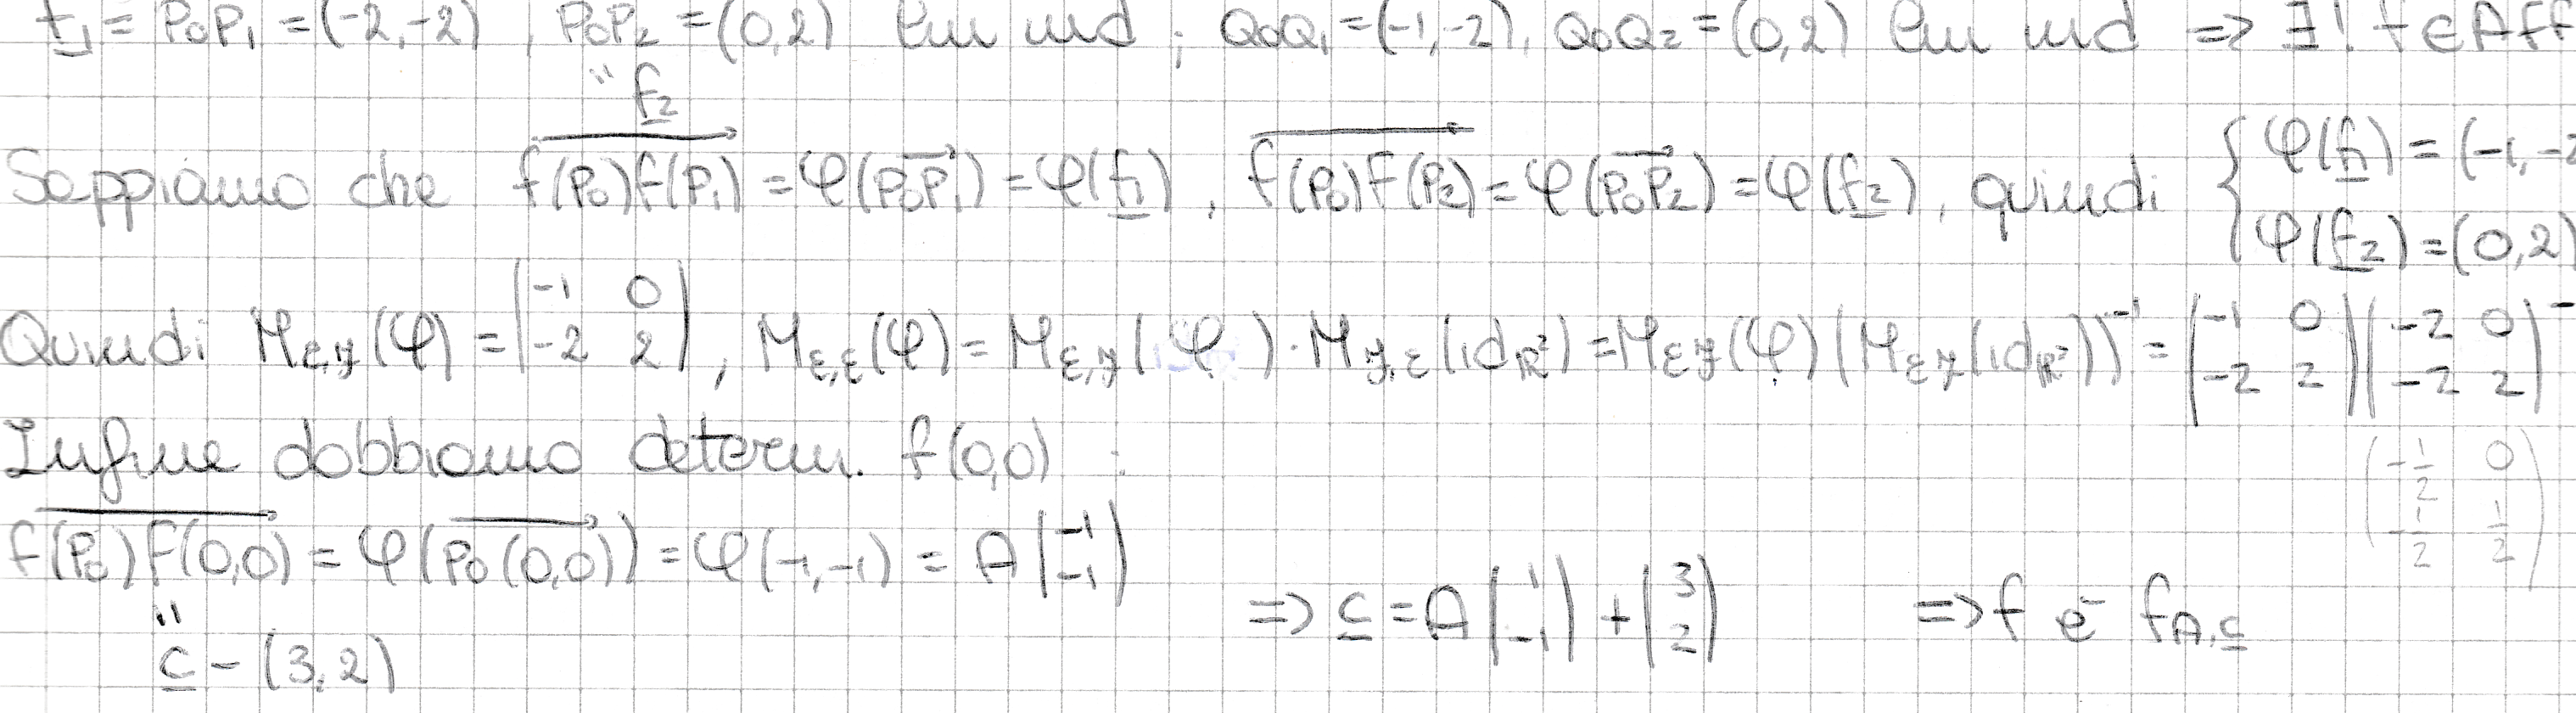 f₁ = P₀P₁ = (-2,-2) , P₀P₂ = (0,2) lin ind ; Q₀Q₁ = (-1,-2), Q₀Q₂ = (0,2) lin ind => ∃! f ∈ Aff
" f₂
Sappiamo che f(P₀)f(P₁) = φ(P₀P₁) = φ(f₁) , f(P₀)f(P₂) = φ(P₀P₂) = φ(f₂) , quindi { φ(f₁) = (-1,-2
φ(f₂) = (0,2)
Quindi M_{ε,F}(φ) = (-1 0 / -2 2) , M_{ε,ε}(φ) = M_{ε,F}(φ) · M_{F,ε}(id_{R²}) = M_{ε,F}(φ) (M_{ε,F}(id_{R²}))⁻¹ = (-1 0 / -2 2) (-2 0 / -2 2)⁻
Infine dobbiamo determ. f(0,0) :
(-1/2 0 / -1/2 1/2)
f(P₀)f(0,0) = φ(P₀(0,0)) = φ(-1,-1) = A (-1 / -1)
" => c = A (1 / -1) + (3 / 2) => f è f_{A,c}
c - (3,2)